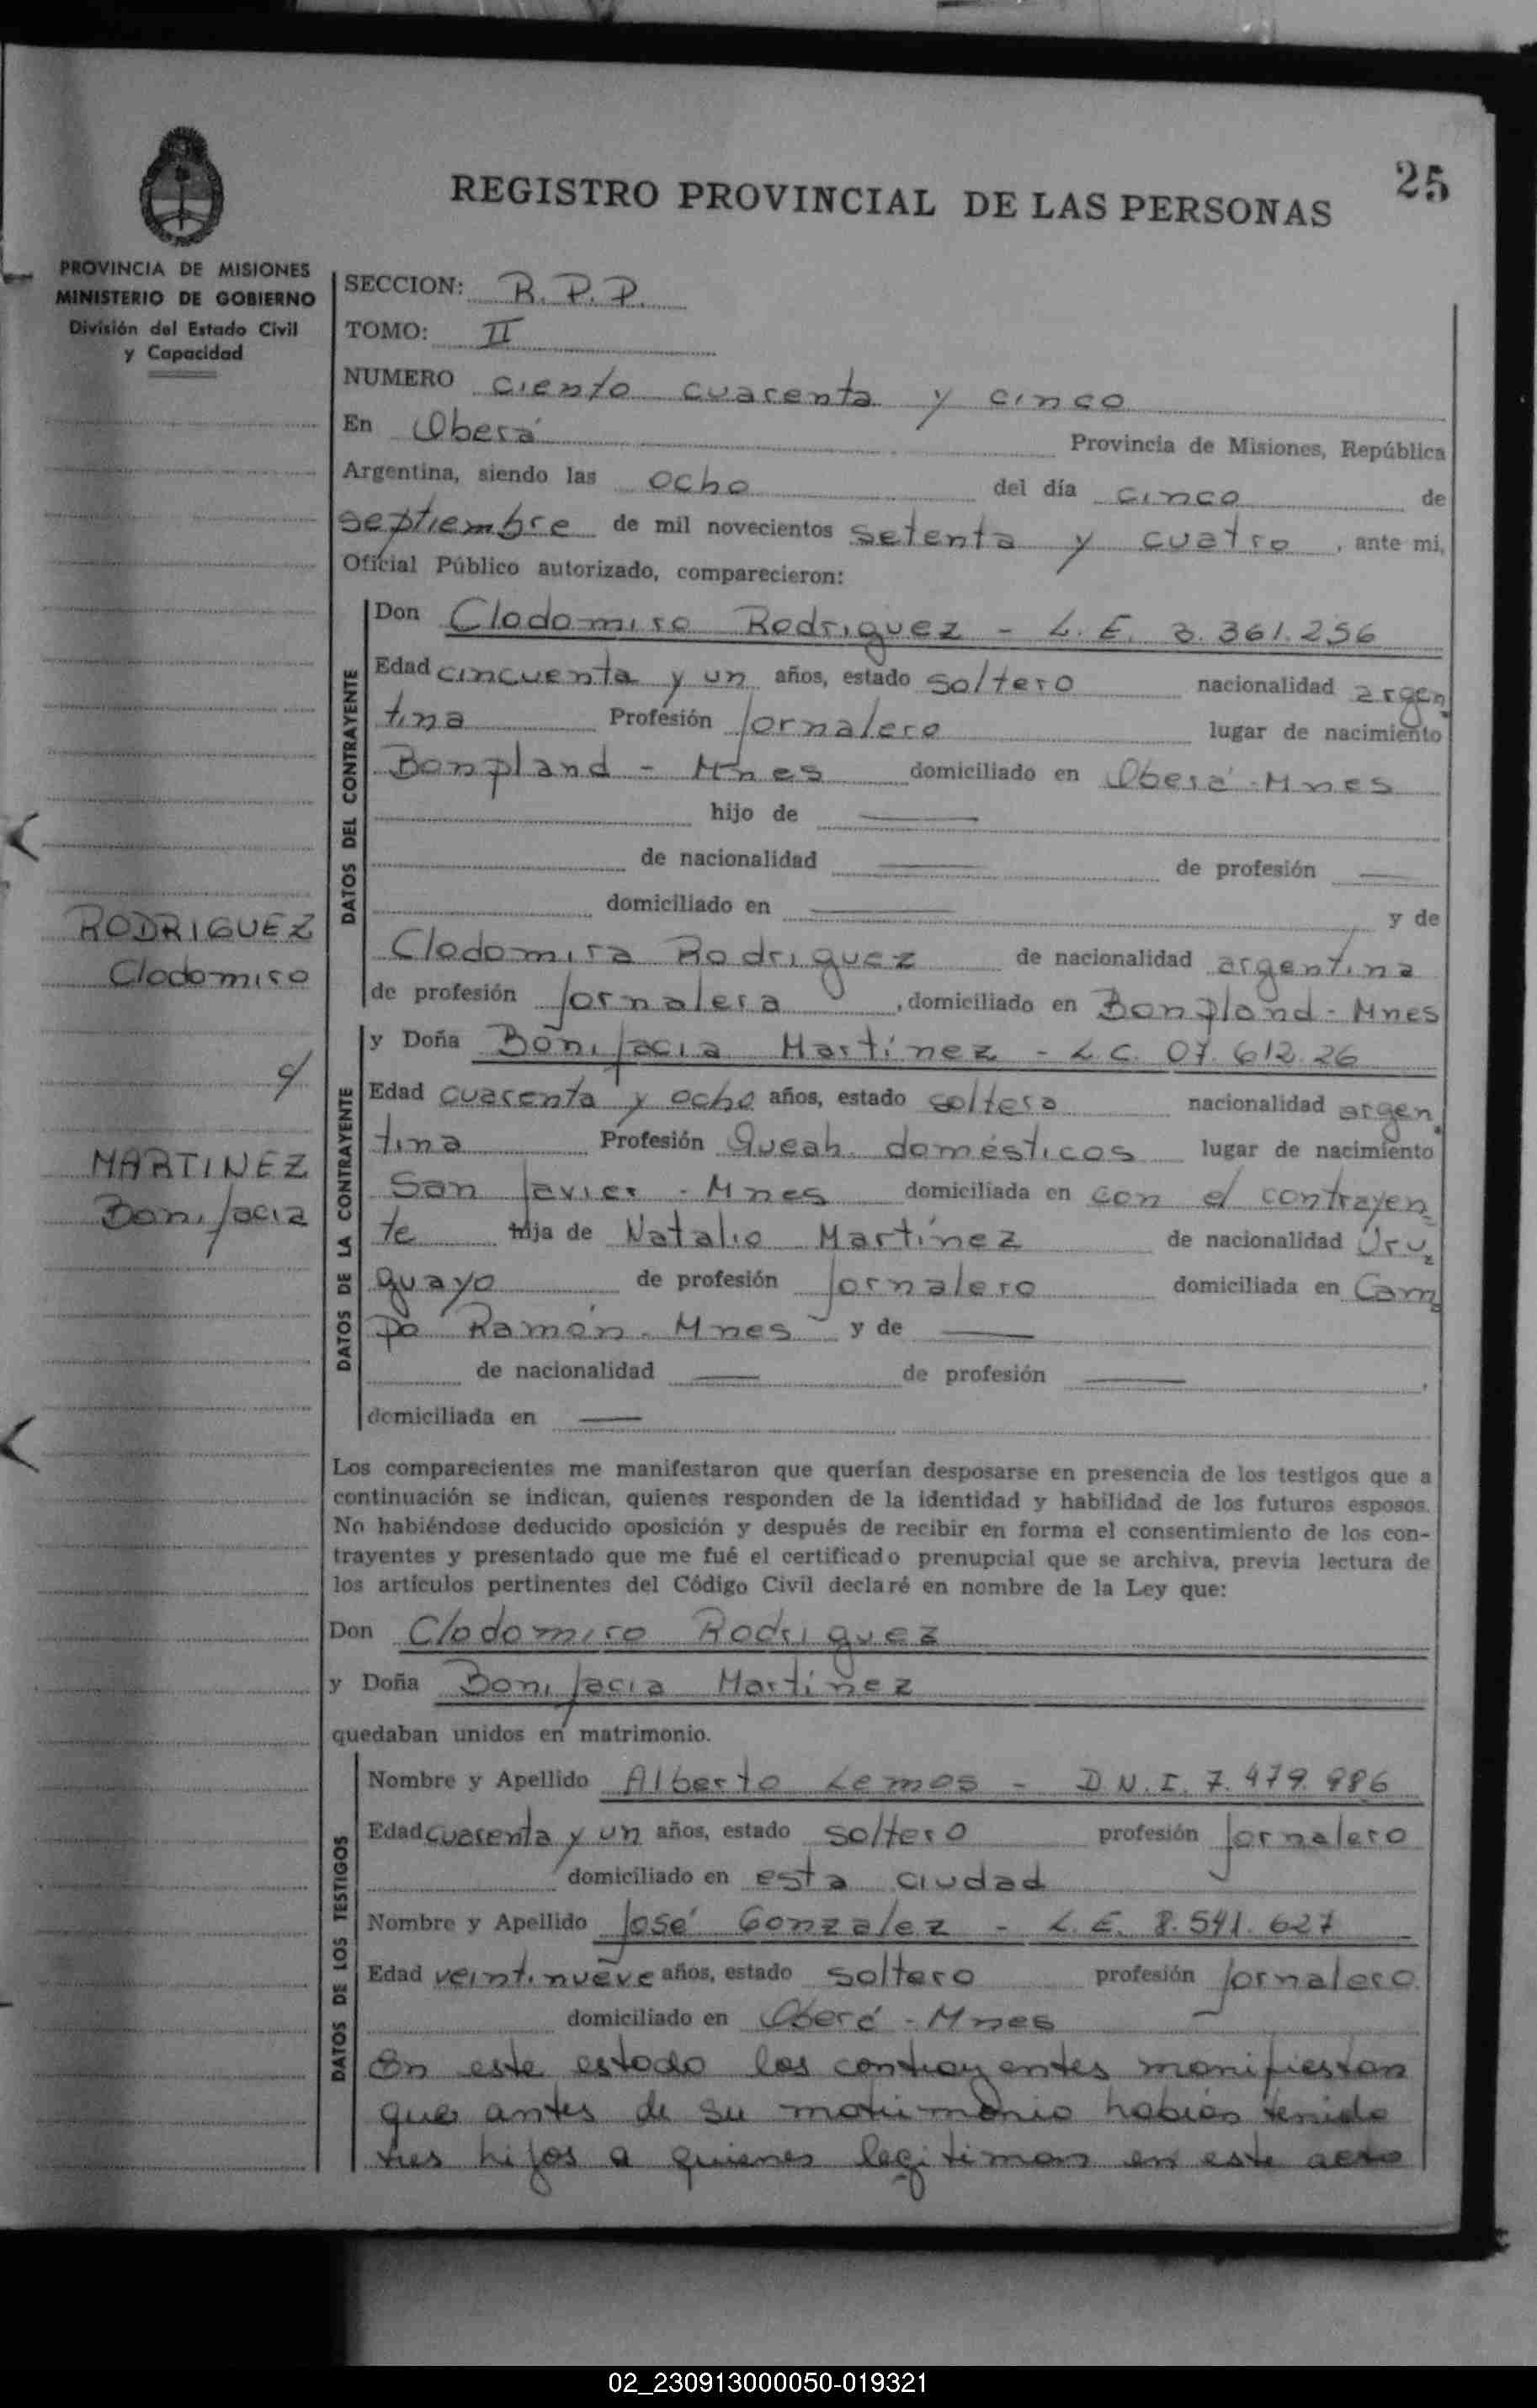 25
REGISTRO PROVINCIAL DE LAS PERSONAS
PROVINCIA DE MISIONES
MINISTERIO DE GOBIERNO
División del Estado Civil
y Capacidad
SECCION: R. P. P.
TOMO: II
NUMERO ciento cuarenta y cinco
En Oberá Provincia de Misiones, República
Argentina, siendo las ocho del día cinco de
septiembre de mil novecientos setenta y cuatro, ante mi,
Oficial Público autorizado, comparecieron:
DATOS DEL CONTRAYENTE
Don Clodomiro Rodriguez - L. E. 3.361.256
Edad cincuenta y un años, estado soltero nacionalidad argen
tina Profesión Jornalero lugar de nacimiento
Bonpland - Mnes domiciliado en Oberá - Mnes
hijo de
de nacionalidad de profesión
domiciliado en y de
Clodomira Rodriguez de nacionalidad argentina
de profesión Jornalera, domiciliado en Bonpland - Mnes
RODRIGUEZ
Clodomiro
c/
MARTINEZ
Bonifacia
DATOS DE LA CONTRAYENTE
y Doña Bonifacia Martínez - L. C. 07.612.26
Edad cuarenta y ocho años, estado soltera nacionalidad argen
tina Profesión Queah. domésticos lugar de nacimiento
San Javier - Mnes domiciliada en con el contrayen
te hija de Natalio Martínez de nacionalidad Uru
guayo de profesión Jornalero domiciliada en Cam
po Ramón - Mnes y de
de nacionalidad de profesión ,
domiciliada en
Los comparecientes me manifestaron que querían desposarse en presencia de los testigos que a
continuación se indican, quienes responden de la identidad y habilidad de los futuros esposos.
No habiéndose deducido oposición y después de recibir en forma el consentimiento de los con-
trayentes y presentado que me fué el certificado prenupcial que se archiva, previa lectura de
los artículos pertinentes del Código Civil declaré en nombre de la Ley que:
Don Clodomiro Rodriguez
y Doña Bonifacia Martínez
quedaban unidos en matrimonio.
DATOS DE LOS TESTIGOS
Nombre y Apellido Alberto Lemos - D.N.I. 7.479.986
Edad cuarenta y un años, estado soltero profesión Jornalero
domiciliado en esta ciudad
Nombre y Apellido José Gonzalez - L. E. 8.541.627
Edad veintinueve años, estado soltero profesión Jornalero
domiciliado en Oberá - Mnes
En este estado los contrayentes manifiestan
que antes de su matrimonio habían tenido
tres hijos a quienes legitiman en este acto
02_230913000050-019321